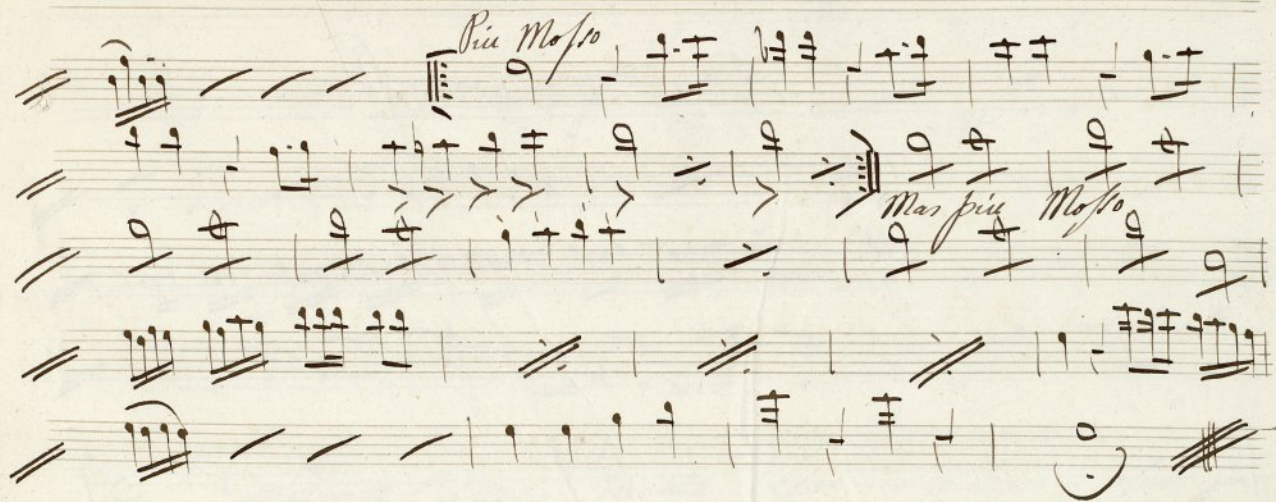 Piu Mosso
Mas piu Mosso